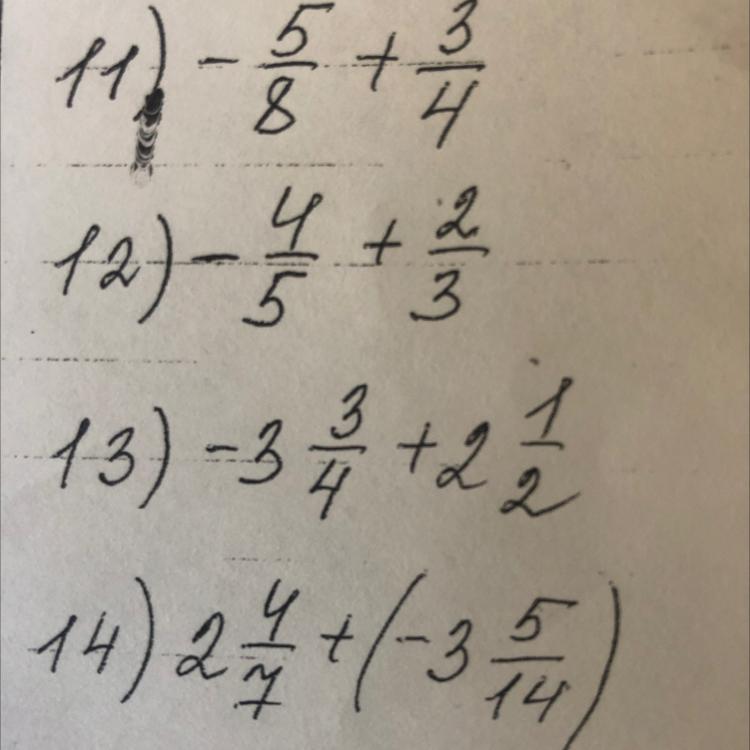 11) - 5/8 + 3/4
12) - 4/5 + 2/3
13) -3 3/4 + 2 1/2
14) 2 4/7 + (-3 5/14)